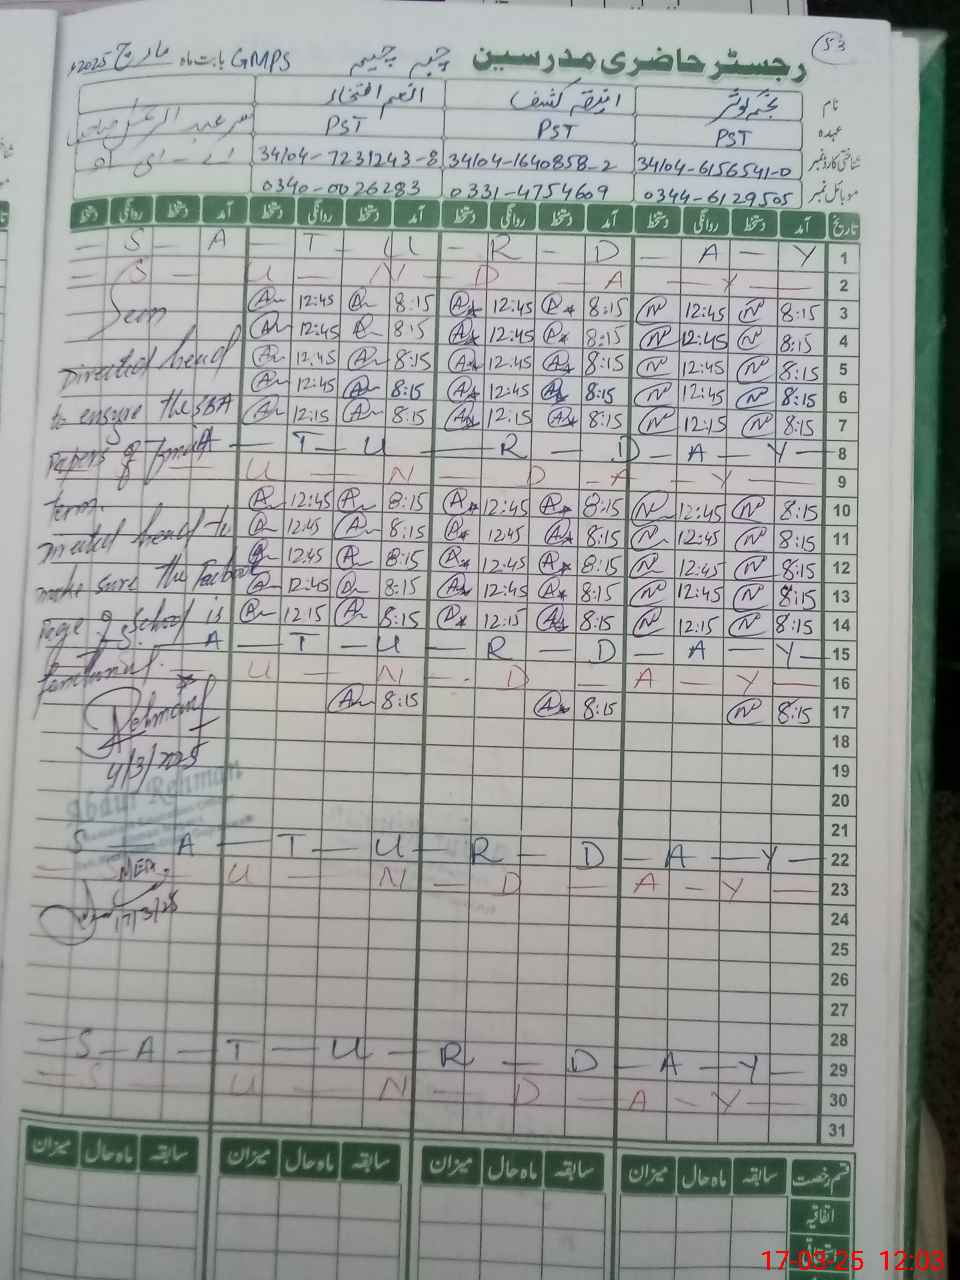 53
رجسٹر حاضری مدرسین چبہ چیمہ GMPS بابت ماہ مارچ 2025ء
نام انیقہ کشف انعم افتخار
عہدہ PST PST PST
شناختی کارڈ نمبر 34104-6156541-0 34104-1640858-2 34104-7231243-8
موبائل نمبر 0344-6129505 0331-4754609 0340-0026283
تاریخ آمد دستخط روانگی دستخط آمد دستخط روانگی دستخط آمد دستخط روانگی دستخط آمد دستخط روانگی دستخط
S — A — T — U — R — D — A — Y 1
S — U — N — D A — Y — 2
12:45 8:15 12:45 8:15 12:45 8:15 3
12:45 8:15 12:45 8:15 12:45 8:15 4
12:45 8:15 12:45 8:15 12:45 8:15 5
12:45 8:15 12:45 8:15 12:45 8:15 6
12:15 8:15 12:15 8:15 12:15 8:15 7
A — T — U — R — D — A — Y — 8
U — N — D — A — Y — 9
12:45 8:15 12:45 8:15 12:45 8:15 10
12:45 8:15 12:45 8:15 12:45 8:15 11
12:45 8:15 12:45 8:15 12:45 8:15 12
12:45 8:15 12:45 8:15 12:45 8:15 13
12:15 8:15 12:15 8:15 12:15 8:15 14
S — A — T — U — R — D — A — Y — 15
U — N — D — A — Y — 16
8:15 8:15 8:15 17
18
19
20
21
S — A — T — U — R — D — A — Y — 22
U — N — D — A — Y — 23
24
25
26
27
28
— S — A — T — U — R — D — A — Y — 29
— S — U — N — D — A — Y — 30
31
Seen
Directed head
to ensure the SBA
Papers of
term.
Directed head to
make sure the Facebook
Page of School is
functional.
Rehman
4/3/2025
Abdur Rehman
MEA
17/3/25
قسم رخصت سابقہ ماہ حال میزان سابقہ ماہ حال میزان سابقہ ماہ حال میزان سابقہ ماہ حال میزان
اتفاقیہ
17-03-25 12:03